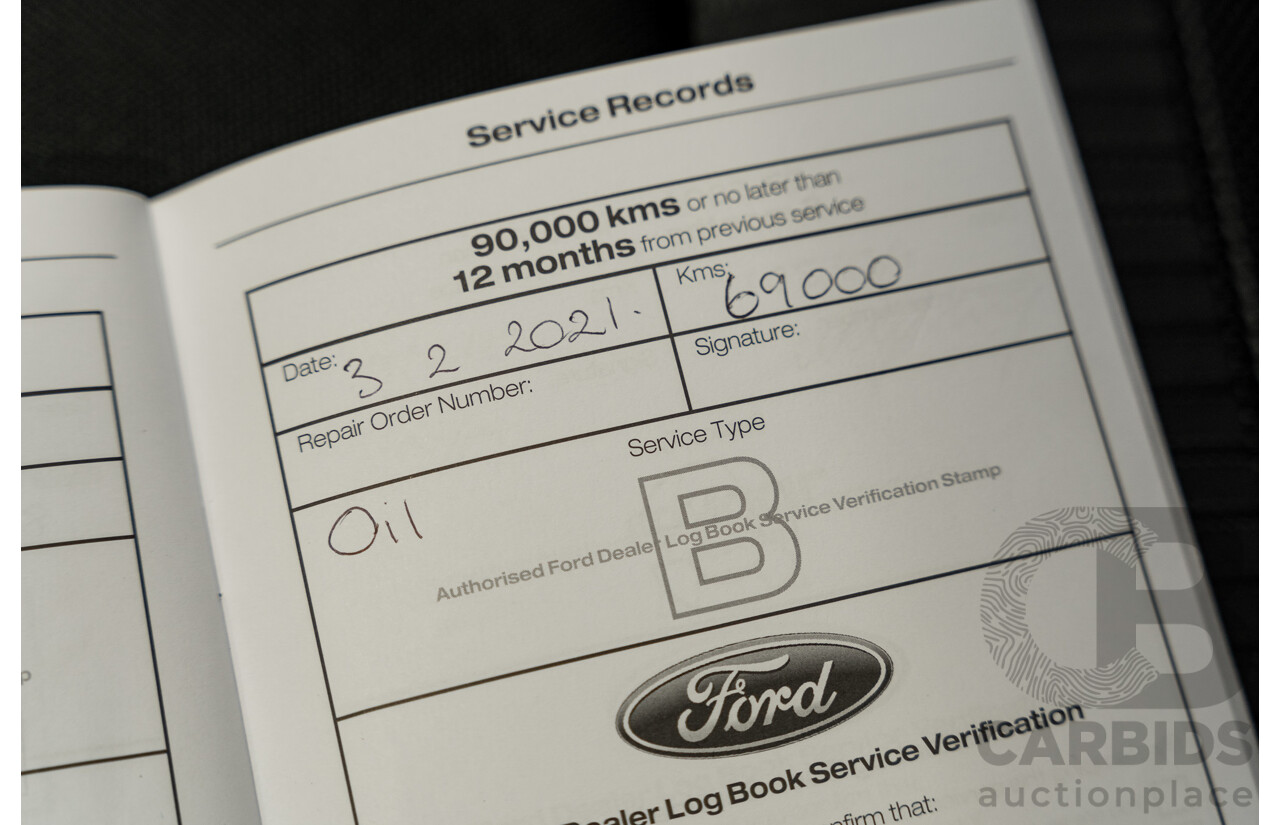 Service Records
90,000 kms or no later than
12 months from previous service
Date: 3 2 2021.
Kms: 69000
Repair Order Number:
Signature:
Service Type
B
Oil
Authorised Ford Dealer Log Book Service Verification Stamp
Ford
Dealer Log Book Service Verification
nfirm that:
p
CARBIDS
auctionplace